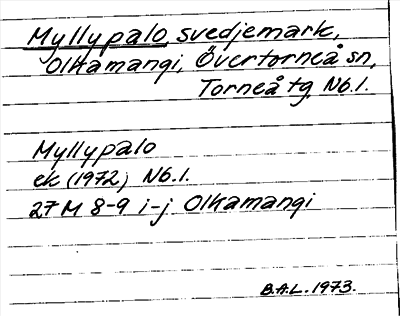 Myllypalo svedjemark,
Olkamangi, Övertorneå sn,
Torneå tg Nb.l.
Myllypalo
ek (1972) Nb.l.
27 M 8-9 i-j Olkamangi
B.A.L. 1973.